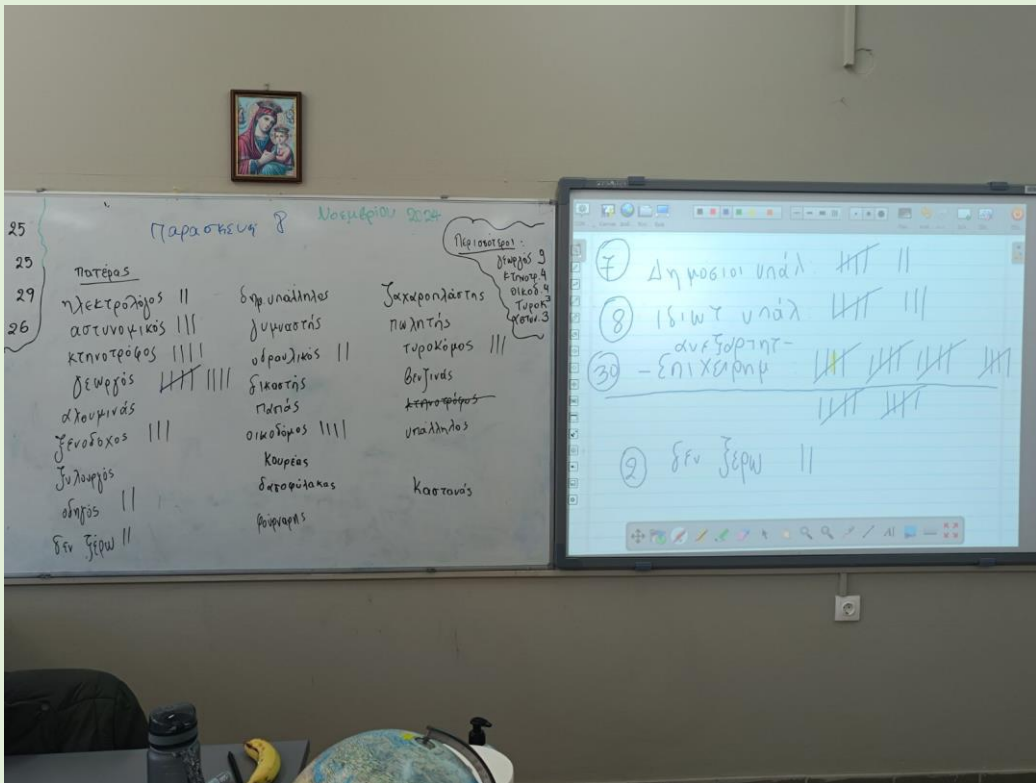 25
25
29
26
Παρασκευή 8 Νοεμβρίου 2024
Περισσότεροι:
γεωργός 9
κτηνοτρ. 4
οικοδ. 4
τυροκ 3
αστυν. 3
πατέρας
ηλεκτρολόγος ||
αστυνομικός |||
κτηνοτρόφος ||||
γεωργός |||| ||||
αλουμινάς
ξενοδόχος |||
ξυλουργός
οδηγός ||
δεν ξέρω ||
δημ. υπάλληλος
γυμναστής
υδραυλικός ||
δικαστής
παπάς
οικοδόμος ||||
κουρέας
δασοφύλακας
φούρναρης
ζαχαροπλάστης
πωλητής
τυροκόμος |||
βενζινάς
κτηνοτρόφος
υπάλληλος
Καστανάς
7 Δημόσιοι υπάλ |||| ||
8 ιδιωτ υπάλ |||| |||
ανεξαρτητ-
30 - Επιχειρημ |||| |||| |||| ||||
|||| ||||
2 δεν ξέρω ||